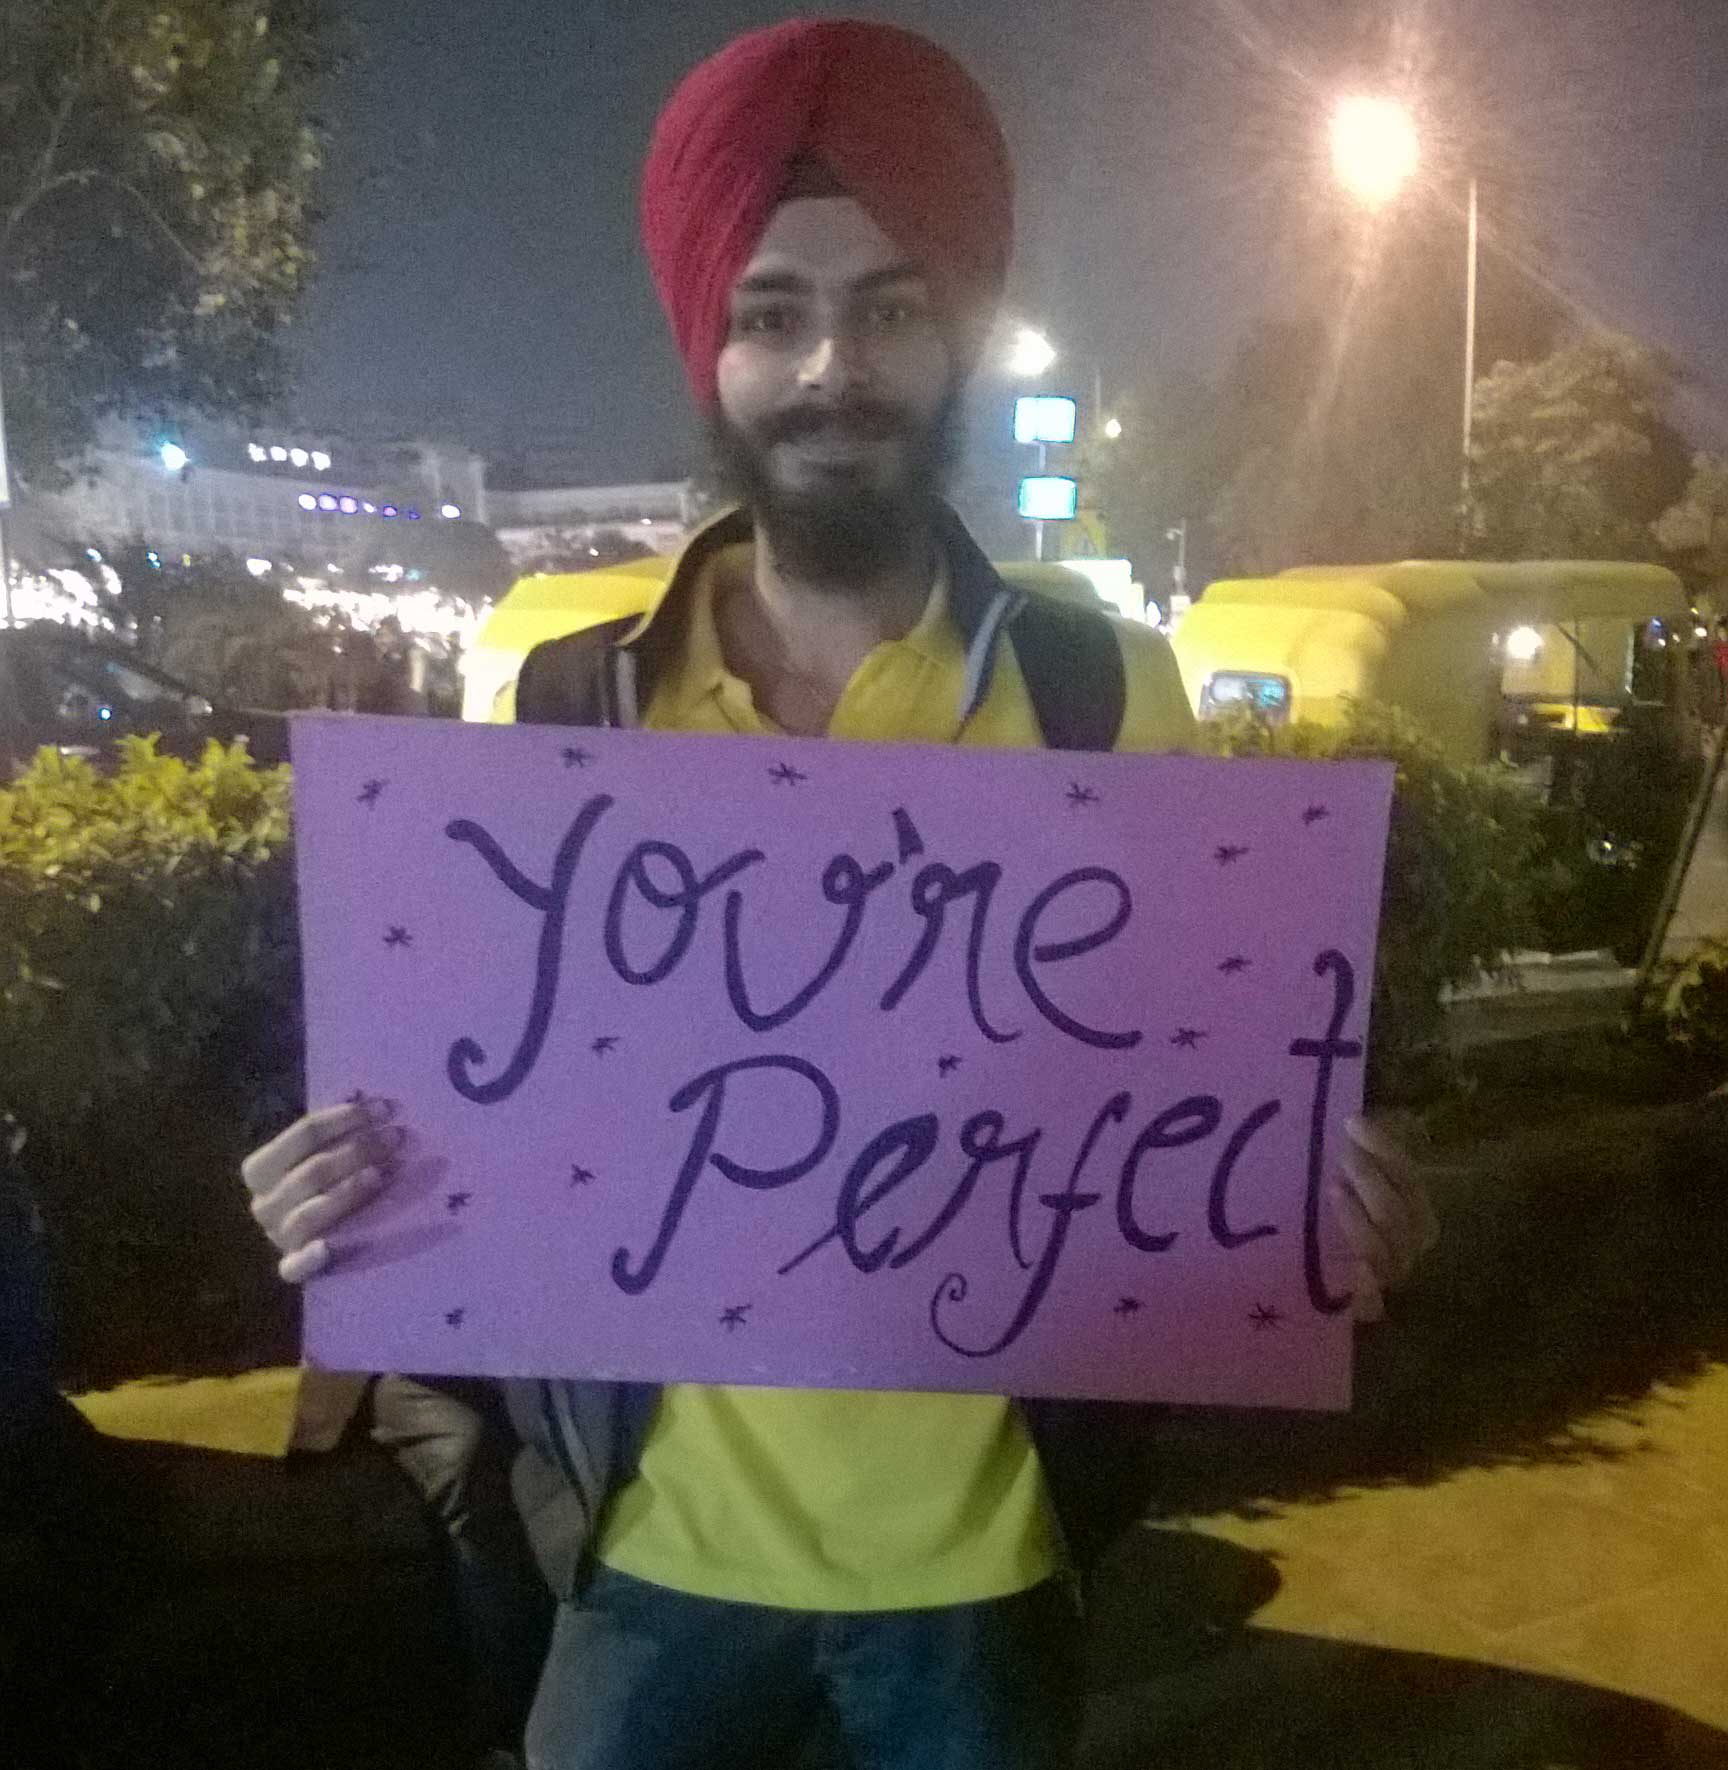 You're
Perfect